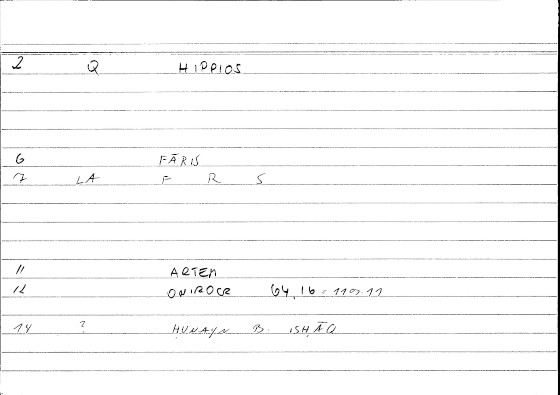 2 Q HIPPIOS
6 FĀRIS
7 LA F R S
11 ARTEM
12 ONIROCR 64,16 = 119.11
14 ? ḤUNAYN B. ISḤĀQ